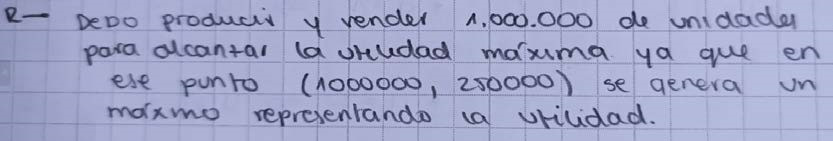 R— Debo producir y vender 1.000.000 de unidades
para alcantar la utiludad máxima ya que en
ese punto (1000000, 250000) se genera un
máxmo representando la utilidad.